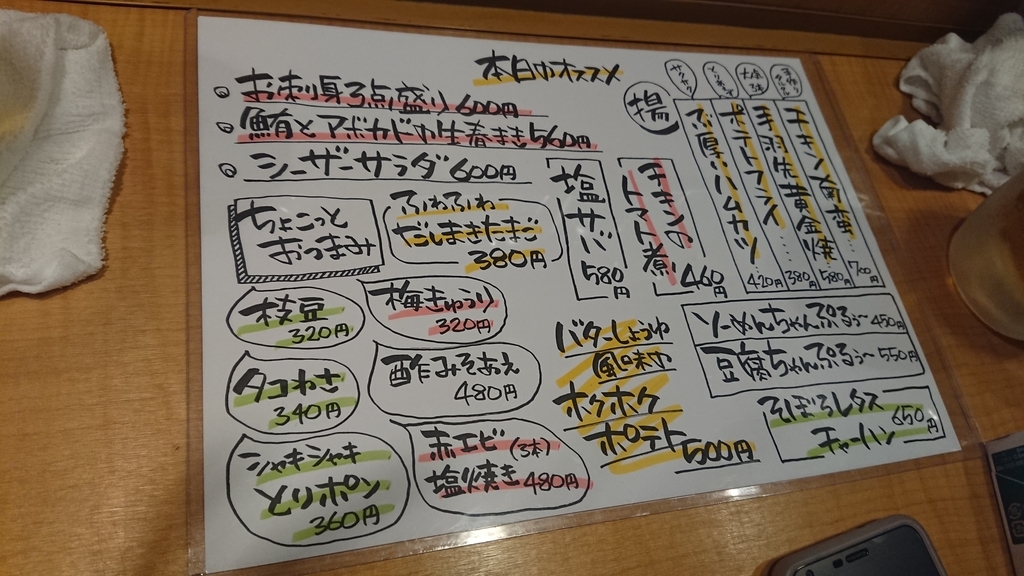 本日のオススメ
お刺身3点盛り600円
鮪とアボカドの生春まき560円
シーザーサラダ600円
ちょこっと
おつまみ
ふわふわ
だしまきたまご
380円
枝豆
320円
梅きゅうり
320円
タコわさ
340円
酢みそあえ
480円
シャキシャキ
とりポン
360円
赤エビ(3本)
塩焼き480円
塩サバ
580円
チキンの
トマト煮
460円
バターしょうゆ
風味の
ホクホク
ポテト500円
揚
チキン南蛮…700円
手羽先黄金揚…580円
ポテトフライ…380
厚ハムカツ
420
ソーめんちゃんぷるぅ〜450円
豆腐ちゃんぷるぅ〜550円
そぼろレタス
チャーハン
650円